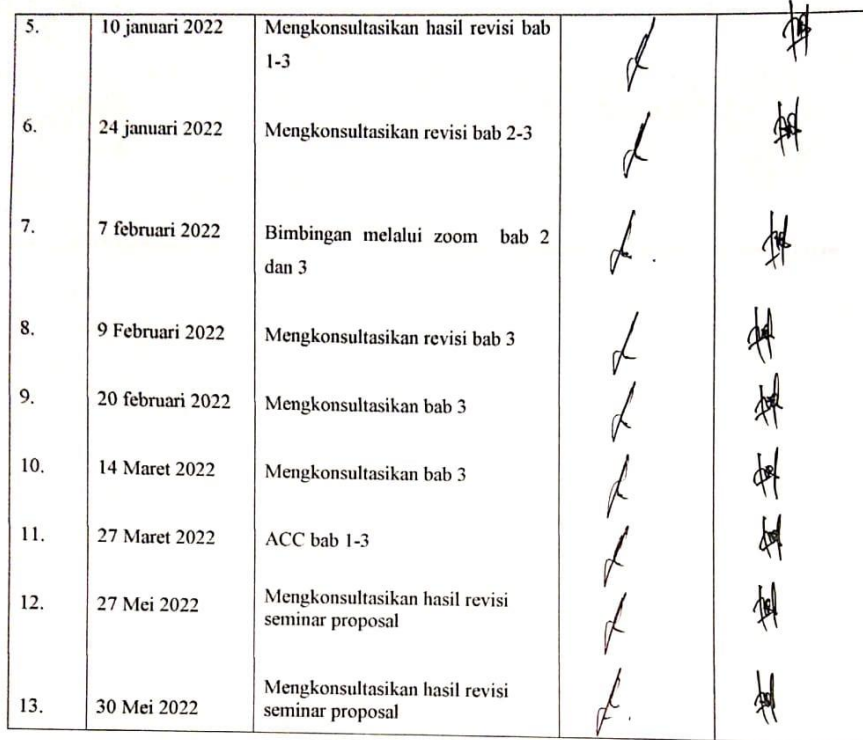 5. 10 januari 2022 Mengkonsultasikan hasil revisi bab
1-3
6. 24 januari 2022 Mengkonsultasikan revisi bab 2-3
7. 7 februari 2022 Bimbingan melalui zoom bab 2
dan 3
8. 9 Februari 2022 Mengkonsultasikan revisi bab 3
9. 20 februari 2022 Mengkonsultasikan bab 3
10. 14 Maret 2022 Mengkonsultasikan bab 3
11. 27 Maret 2022 ACC bab 1-3
12. 27 Mei 2022 Mengkonsultasikan hasil revisi
seminar proposal
13. 30 Mei 2022 Mengkonsultasikan hasil revisi
seminar proposal